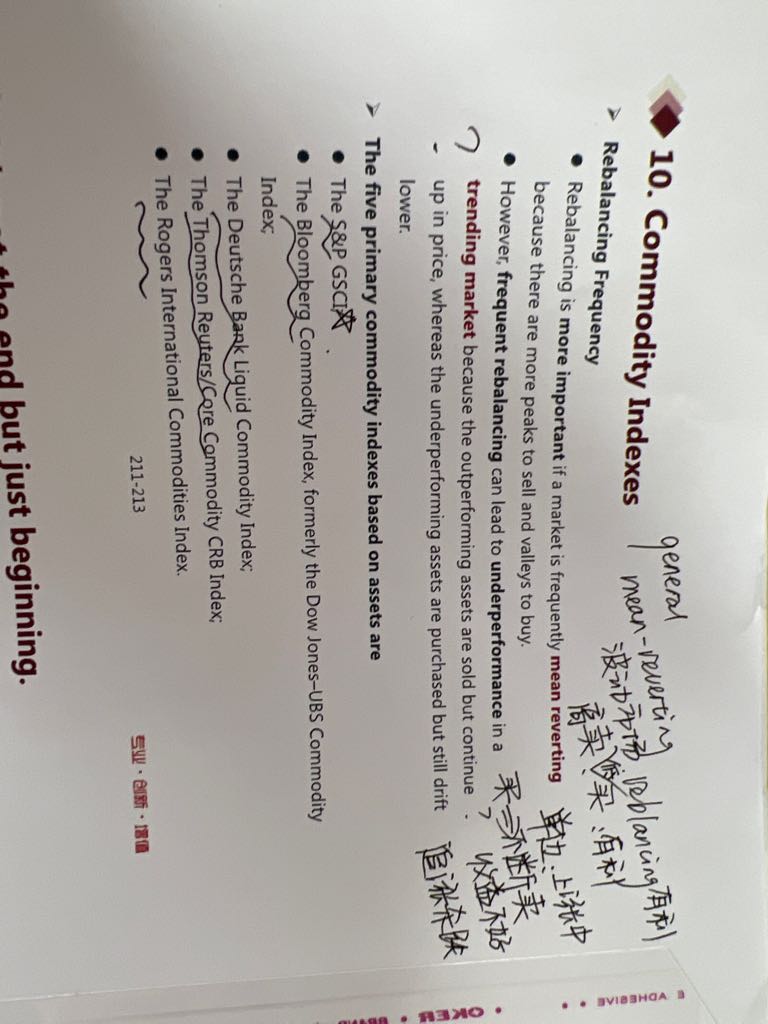 10. Commodity Indexes
➢ Rebalancing Frequency
● Rebalancing is more important if a market is frequently mean reverting
because there are more peaks to sell and valleys to buy.
● However, frequent rebalancing can lead to underperformance in a
trending market because the outperforming assets are sold but continue
up in price, whereas the underperforming assets are purchased but still drift
lower.
➢ The five primary commodity indexes based on assets are
● The S&P GSCI
● The Bloomberg Commodity Index, formerly the Dow Jones–UBS Commodity
Index;
● The Deutsche Bank Liquid Commodity Index;
● The Thomson Reuters/Core Commodity CRB Index;
● The Rogers International Commodities Index.
211-213
专业・创新・增值
general
mean-reverting
波动市场 reblancing有利
高卖、低买、有利
单边、上涨中
不断卖
收益不好
追涨杀跌
the end but just beginning.
E ADHESIVE
OKER